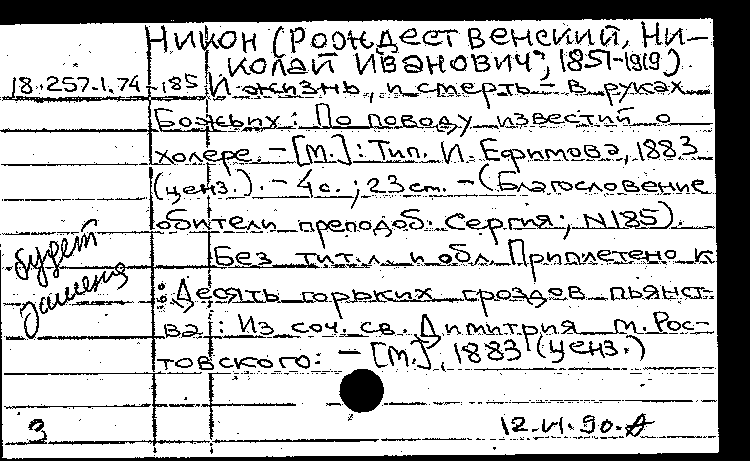 Никон (Рождественский, Ни-
колай Иванович; 1851-1919).
18.257.1.74-185 И жизнь, и смерть – в руках
Божьих: По поводу известий о
холере. – [М.]: Тип. И. Ефимова, 1883
(ценз.). – 4 с.; 23 см. – (Благословение
обители преподоб. Сергия; N185).
Без тит. л. и обл. Приплетено к
: Десять горьких гроздов пьянст-
ва: Из соч. св. Димитрия м. Рос-
товского: – [М.], 1883 (ценз.)
будет
замена
3
12.VI.90.